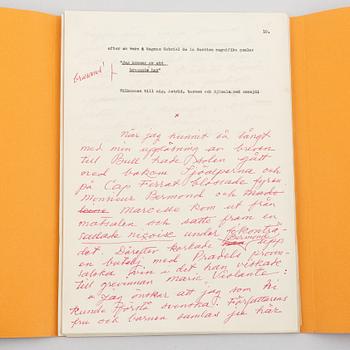 10.
efter en vers å Magnus Gabriel De la Gardies magnifika penlar
"Jag kommer av ett
brusand' hav"
brusand'
Välkommen till mig, Astrid, barnen och hjonelaget
x
När jag hunnit så långt
med min uppläsning av breven
till Bull hade solen gått
ned bakom Sjöalperna och
på Cap Ferrat blossade fyren
Monsieur Bermond och
Marcelle kom ut från
matsalen och satte fram en
salade niçoise under
det. Därefter korkade Bermond upp
en butelj med Pradels prom
i det han viskade
till grevinnan Marie Violante:
"Jag önskar att jag som Ni
kunde förstå svenska. Författarens
fru och barnen samlas ju här